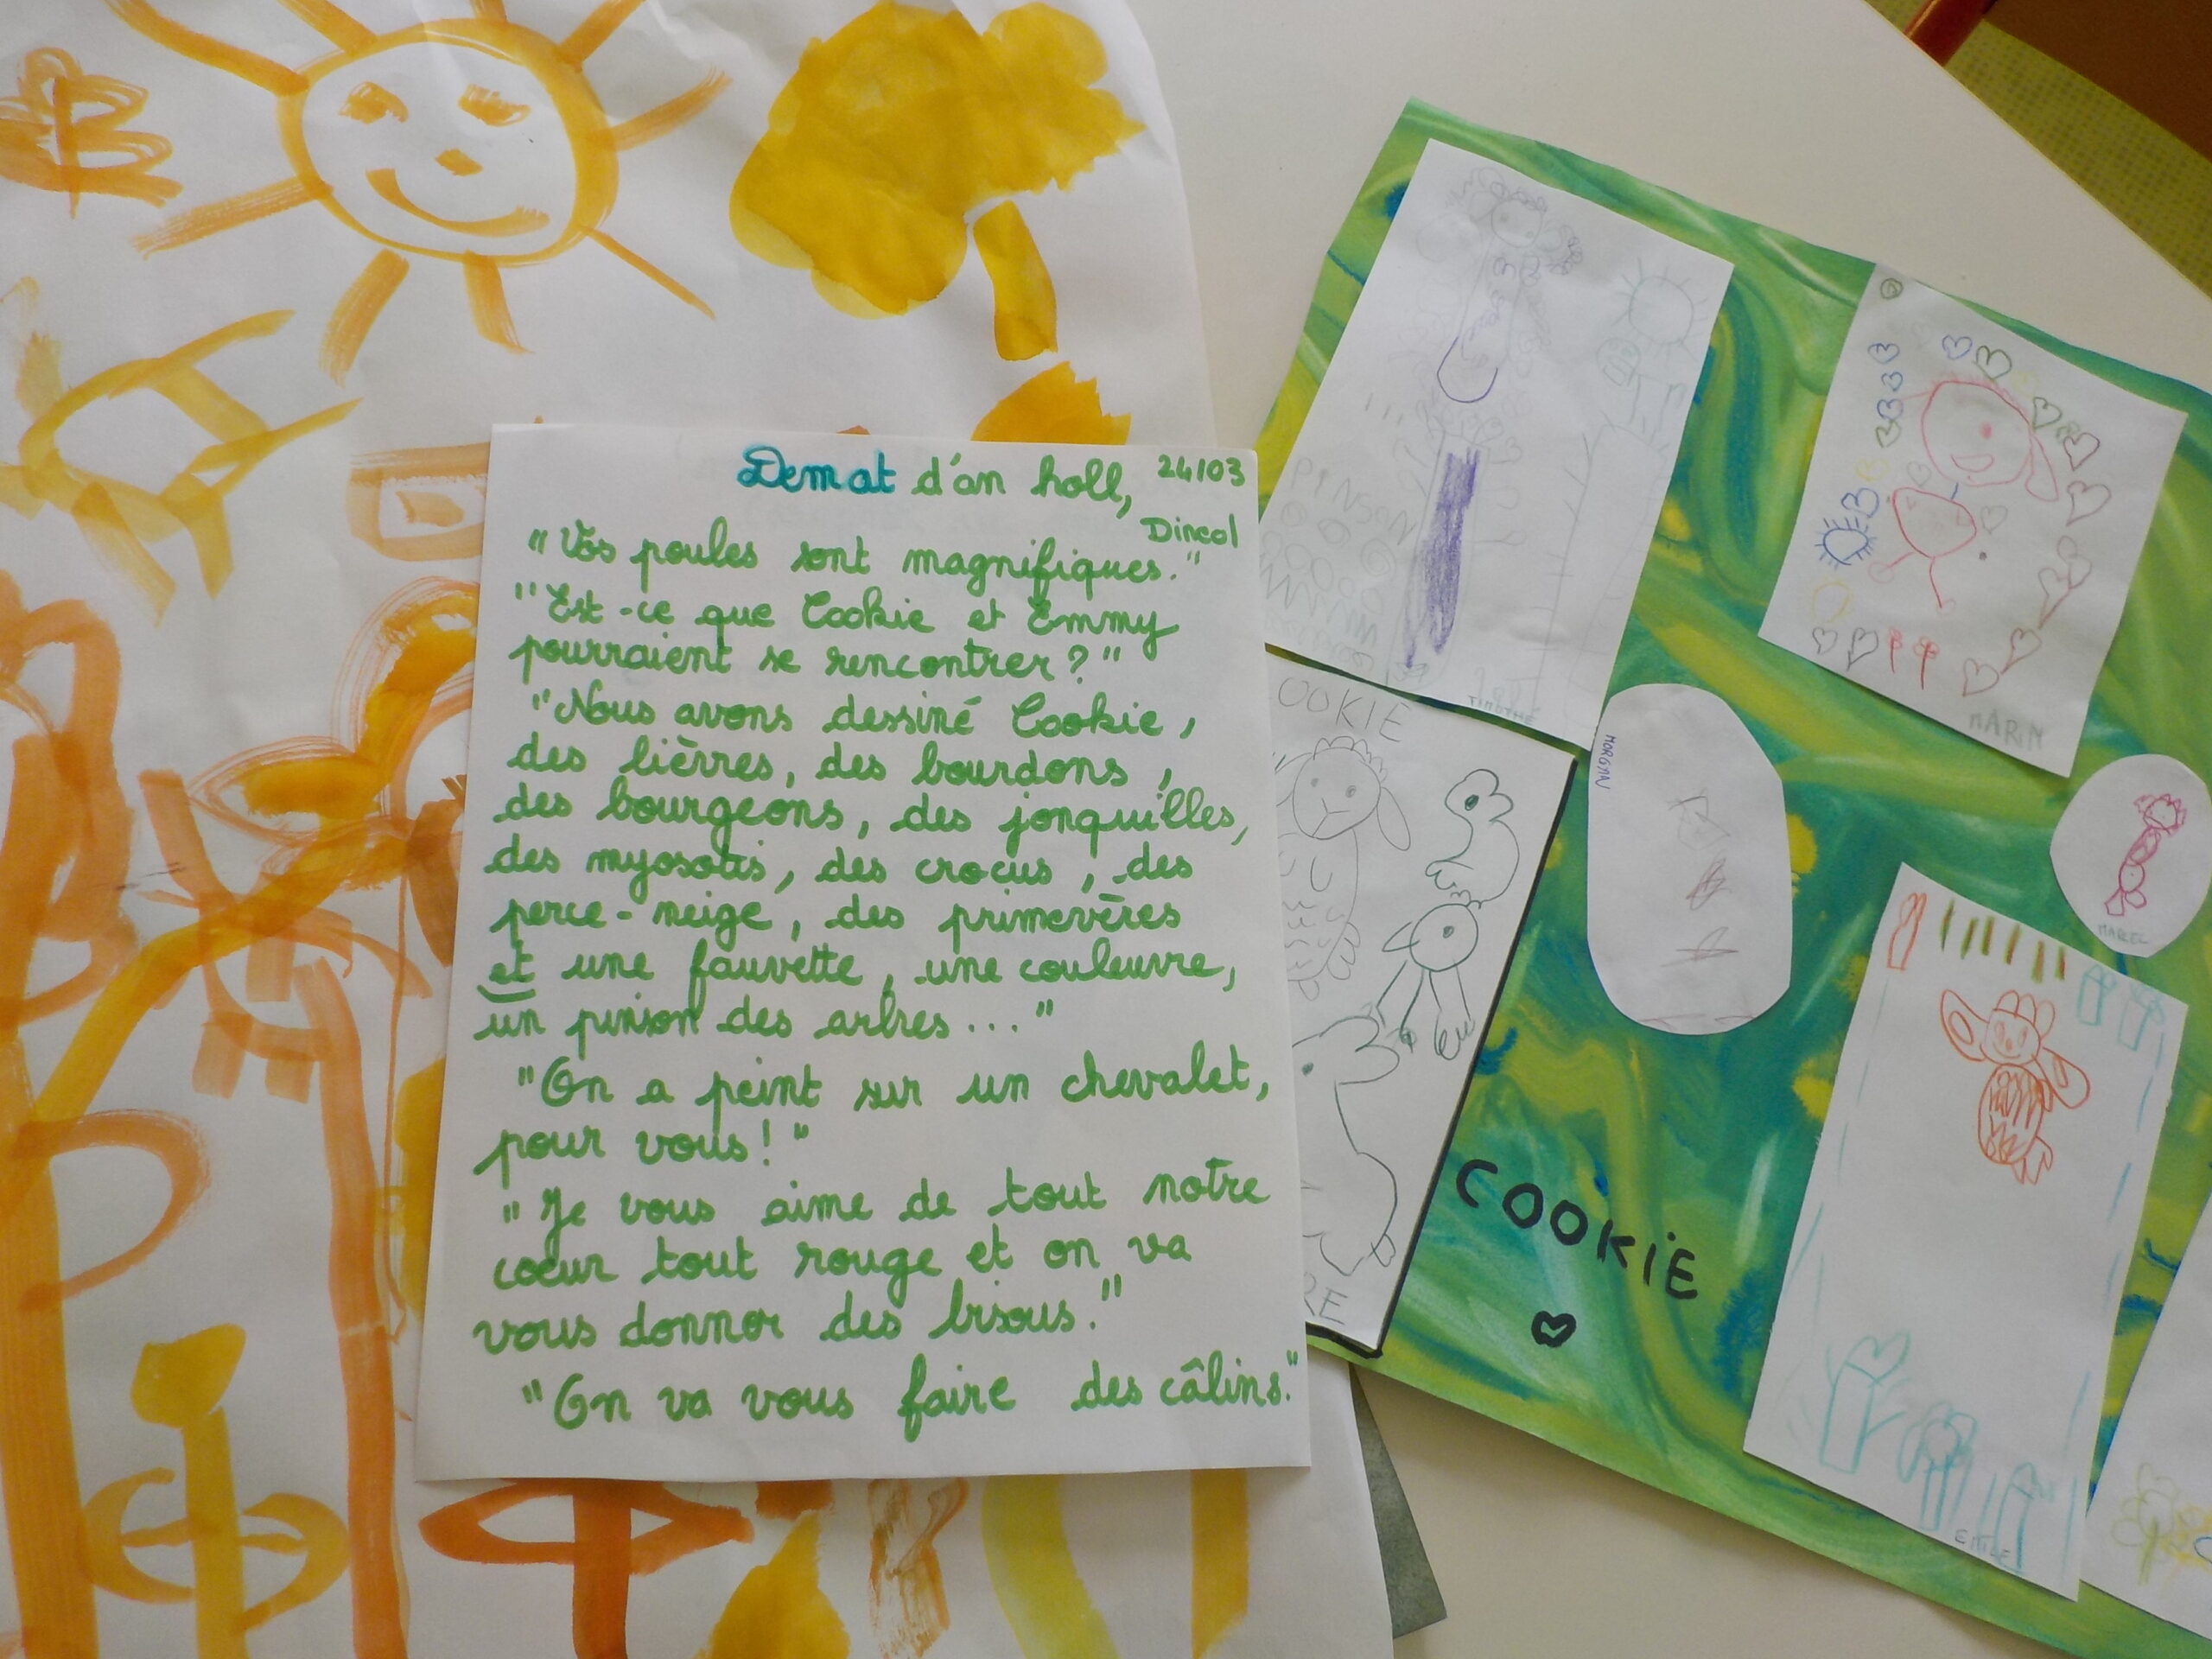 Demat d'an holl, 24/03
Dineol
"Vos poules sont magnifiques."
"Est-ce que Cookie et Emmy
pourraient se rencontrer ?"
"Nous avons dessiné Cookie,
des lièvres, des bourdons,
des bourgeons, des jonquilles,
des myosotis, des crocus, des
perce-neige, des primevères
et une fauvette, une couleuvre,
un pinson des arbres..."
"On a peint sur un chevalet,
pour vous !"
"Je vous aime de tout notre
coeur tout rouge et on va
vous donner des bisous."
"On va vous faire des câlins."
PINSON
TIMOTHÉ
MARIN
OOKIE
MORGAN
COOKIE
RE